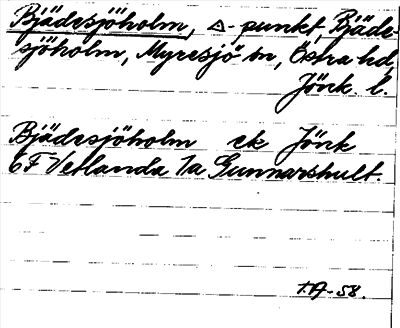 Bjädesjöholm, △-punkt, Bjäde-
sjöholm, Myresjö sn, Östra hd,
Jönk. l.
Bjädesjöholm ek Jönk
6F Vetlanda 7a Gunnarshult.
T.A-58.